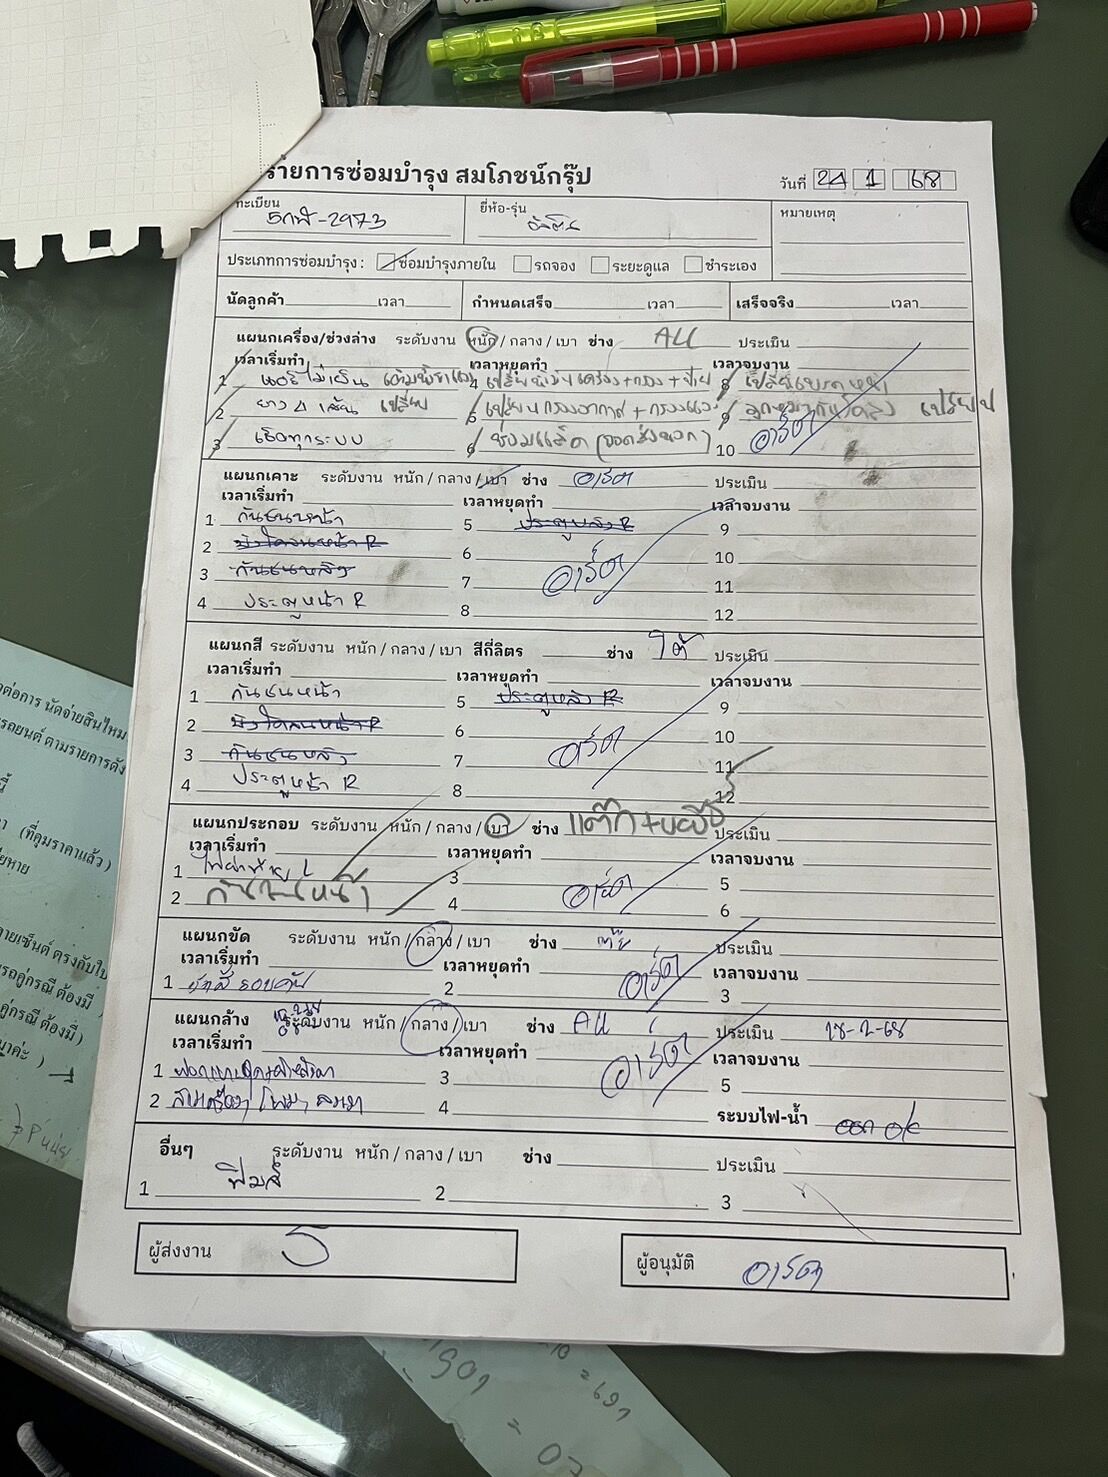 รายการซ่อมบำรุง สมโภชน์กรุ๊ป
วันที่ 24 1 68
ทะเบียน
5กฬ-2973
ยี่ห้อ-รุ่น
หมายเหตุ
ประเภทการซ่อมบำรุง : ซ่อมบำรุงภายใน รถจอง ระยะดูแล ชำระเอง
นัดลูกค้า เวลา กำหนดเสร็จ เวลา เสร็จจริง เวลา
แผนกเครื่อง/ช่วงล่าง ระดับงาน หนัก / กลาง / เบา ช่าง ALL ประเมิน
เวลาเริ่มทำ เวลาหยุดทำ เวลาจบงาน
1 แอร์ไม่เย็น 4 เปลี่ยนน้ำมันเครื่อง+กรอง 8 เปลี่ยนเบรคหน้า
2 ยาง 4 เส้น เปลี่ยน 5 เปลี่ยนกรองอากาศ + กรองแอร์ 9 เปลี่ยน
3 เช็คทุกระบบ 6 10 อาร์ต
แผนกเคาะ ระดับงาน หนัก / กลาง / เบา ช่าง อาร์ต ประเมิน
เวลาเริ่มทำ เวลาหยุดทำ เวลาจบงาน
1 กันชนหน้า 5 ประตูหลัง R 9
2 6 10
3 กันชนหลัง 7 อาร์ต 11
4 ประตูหน้า R 8 12
แผนกสี ระดับงาน หนัก / กลาง / เบา สีกี่ลิตร ช่าง ใต้ ประเมิน
เวลาเริ่มทำ เวลาหยุดทำ เวลาจบงาน
1 กันชนหน้า 5 ประตูหลัง R 9
2 6 10
3 กันชนหลัง 7 อาร์ต 11
4 ประตูหน้า R 8 12
แผนกประกอบ ระดับงาน หนัก / กลาง / เบา ช่าง ประเมิน
เวลาเริ่มทำ เวลาหยุดทำ เวลาจบงาน
1 3 5
2 กันชนหน้า 4 อาร์ต 6
แผนกขัด ระดับงาน หนัก / กลาง / เบา ช่าง ประเมิน
เวลาเริ่มทำ เวลาหยุดทำ เวลาจบงาน
1 ขัดสีรอบคัน 2 อาร์ต 3
แผนกล้าง ระดับงาน หนัก / กลาง / เบา ช่าง ALL ประเมิน 18-2-68
เวลาเริ่มทำ เวลาหยุดทำ เวลาจบงาน
1 3 อาร์ต 5
2 4 ระบบไฟ-น้ำ
อื่นๆ ระดับงาน หนัก / กลาง / เบา ช่าง ประเมิน
1 2 3
ผู้ส่งงาน
ผู้อนุมัติ อาร์ต
(ที่คุมราคาแล้ว)